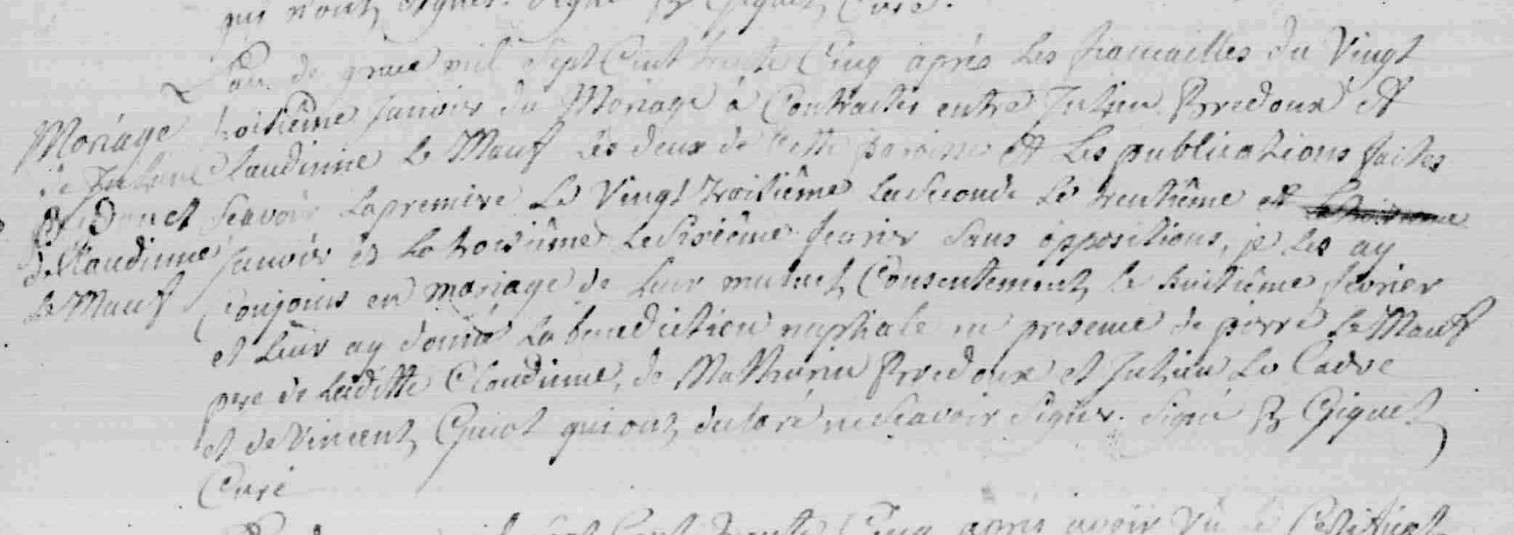 qui n'ont signer. Signé Giquel, Curé.
L'an de grace mil Sept Cent trente Cinq après Les fiancailles du Vingt
troisième Janvier du Mariage à Contracter entre Julien Predoux et
Claudinne Le Mauf Les deux de Cette paroisse et Les publications faites
Scavoir La premire Le Vingt troisième La Seconde Le trentième et
Janvier et La troisième Le Sixième fevrier Sans oppositions, je Les ay
Conjoins en mariage de Leur mutuel Consentement Le huitième fevrier
et Leur ay donné La benediction nuptiale en presence de pierre Le Mauf
pere de Laditte Claudinne, de Mathurin Predoux et Julien Le Cadre
et de Vincent Guiot qui ont declaré ne Scavoir Signer. Signé Giquel
Curé
Mariage
de Julien
Predoux et
Claudinne
Le Mauf
Cent trente Cinq après avoir Vu Le Certificat